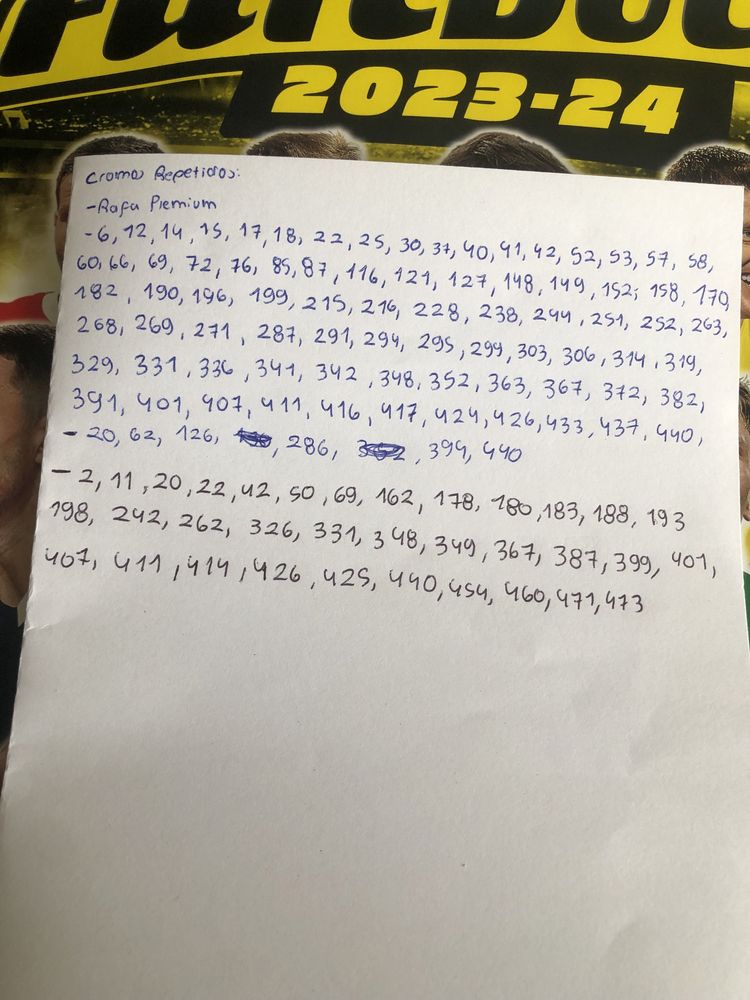 FUTEBOL
2023-24
Cromos Repetidos:
-Rafa Premium
-6, 12, 14, 15, 17, 18, 22, 25, 30, 37, 40, 41, 42, 52, 53, 57, 58,
60, 66, 69, 72, 76, 85, 87, 116, 121, 127, 148, 149, 152; 158, 170,
182, 190, 196, 199, 215, 216, 228, 238, 244, 251, 252, 263,
268, 269, 271, 287, 291, 294, 295, 299, 303, 306, 314, 319,
329, 331, 336, 341, 342, 348, 352, 363, 367, 372, 382,
391, 401, 407, 411, 416, 417, 424, 426, 433, 437, 440,
- 20, 62, 126, , 286, , 394, 440
- 2, 11, 20, 22, 42, 50, 69, 162, 178, 180, 183, 188, 193
198, 242, 262, 326, 331, 348, 349, 367, 387, 399, 401,
407, 411, 414, 426, 425, 440, 454, 460, 471, 473